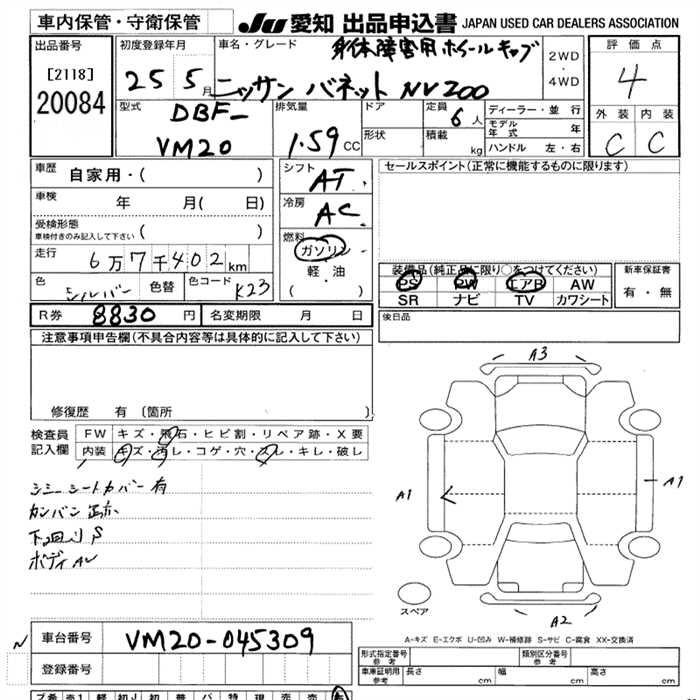 車内保管・守衛保管
JU 愛知 出品申込書 JAPAN USED CAR DEALERS ASSOCIATION
出品番号
[2118]
20084
初度登録年月
25 5月
車名・グレード
身体障害用 ホイールキャブ
ニッサン バネット NV200
2WD
・
4WD
評価点
4
外装 内装
C C
型式
DBF-
VM20
排気量
1.59 CC
ドア
形状
定員
6 人
積載
kg
ディーラー・並行
モデル年式 年
ハンドル 左・右
車歴
自家用・( )
車検
年 月( 日)
受検形態
車検付きのみ記入して下さい ( )
走行
6万7千402km
色
シルバー
色替
色コード
K23
シフト
AT
冷房
AC
燃料
ガソリン
軽・油
( )
セールスポイント(正常に機能するものに限ります)
装備品(純正品に限り○をつけてください)
PS PW エアB AW
SR ナビ TV カワシート
新車保証書
有・無
R券 8830 円
名変期限 月 日
後日品
注意事項申告欄(不具合内容等は具体的に記入して下さい)
修復歴 有 〔箇所 〕
検査員
記入欄
FW キズ・飛石・ヒビ割・リペア跡・X要
内装 キズ・汚レ・コゲ・穴・スレ・キレ・破レ
シミー シートカバー有
カンバン 跡
下回り S
ボディ
A3
A1
A1
A2
スペア
A-キズ E-エクボ U-凹み W-補修跡 S-サビ C-腐食 XX-交換済
N
車台番号
VM20-045309
登録番号
形式指定番号
参考
類別区分番号
参考
車庫証明用
参考
長さ cm
幅 cm
高さ cm